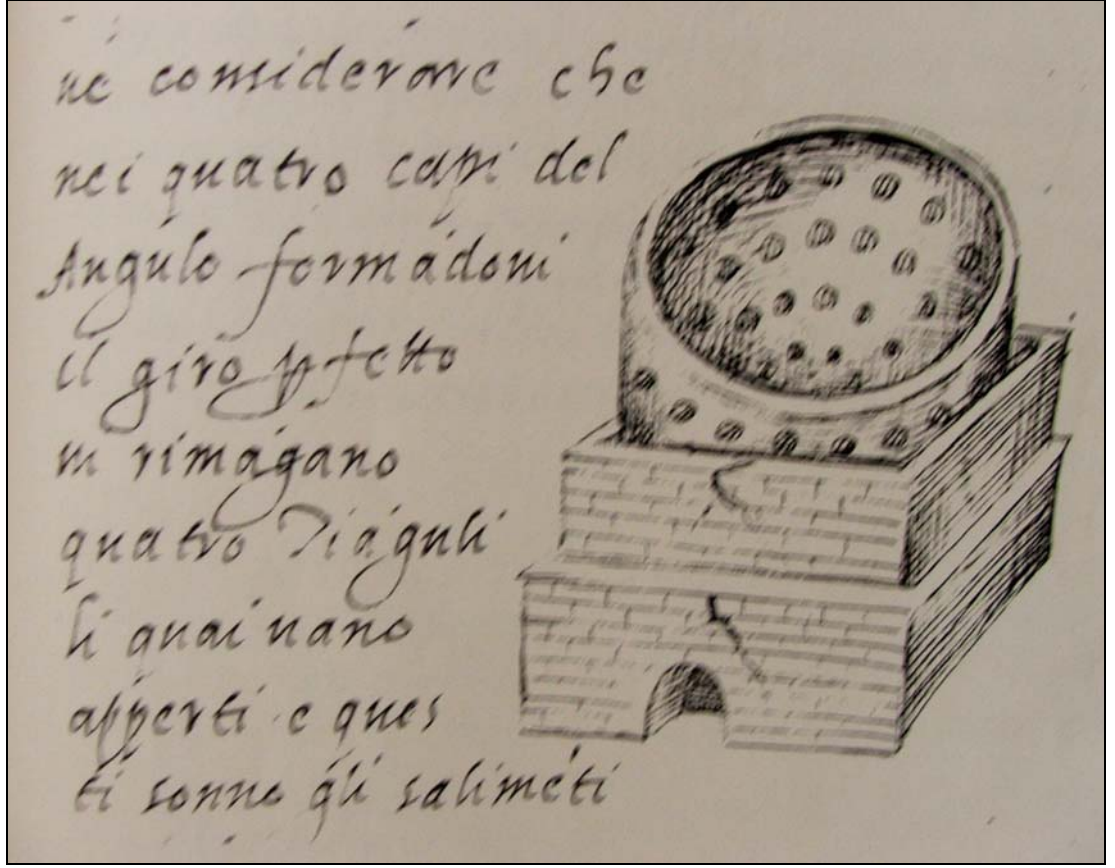 ne considerare che
nei quatro capi del
Angulo formádoni
il giro pfetto
ui rimágano
quatro Triáguli
li quai uano
apperti e ques
ti sonno q̃li saliméti